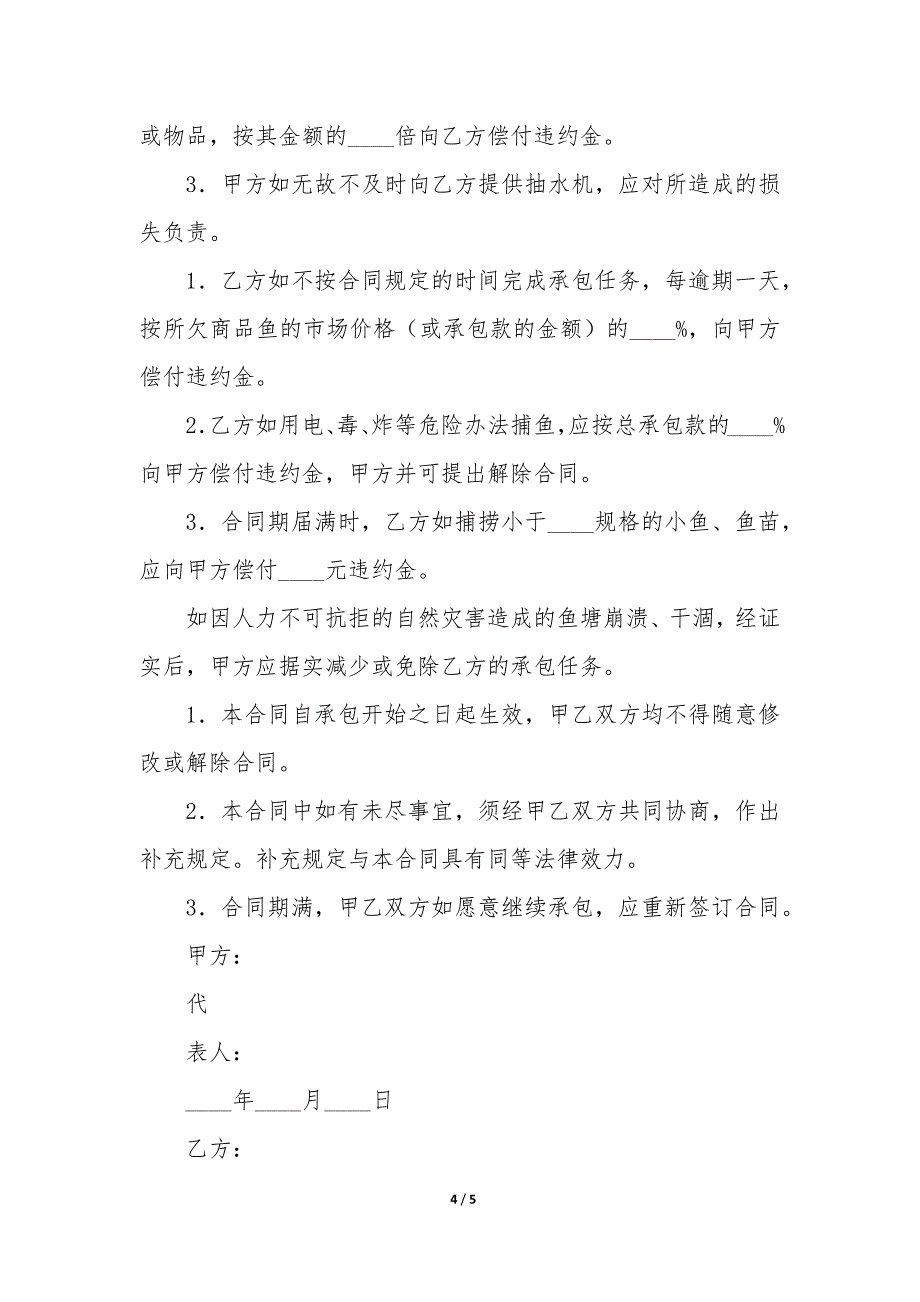 或物品，按其金额的____倍向乙方偿付违约金。
3．甲方如无故不及时向乙方提供抽水机，应对所造成的损
失负责。
1．乙方如不按合同规定的时间完成承包任务，每逾期一天，
按所欠商品鱼的市场价格（或承包款的金额）的____%，向甲方
偿付违约金。
2.乙方如用电、毒、炸等危险办法捕鱼，应按总承包款的____%
向甲方偿付违约金，甲方并可提出解除合同。
3．合同期届满时，乙方如捕捞小于____规格的小鱼、鱼苗，
应向甲方偿付____元违约金。
如因人力不可抗拒的自然灾害造成的鱼塘崩溃、干涸，经证
实后，甲方应据实减少或免除乙方的承包任务。
1．本合同自承包开始之日起生效，甲乙双方均不得随意修
改或解除合同。
2．本合同中如有未尽事宜，须经甲乙双方共同协商，作出
补充规定。补充规定与本合同具有同等法律效力。
3．合同期满，甲乙双方如愿意继续承包，应重新签订合同。
甲方：
代
表人：
____年____月____日
乙方：
4 / 5